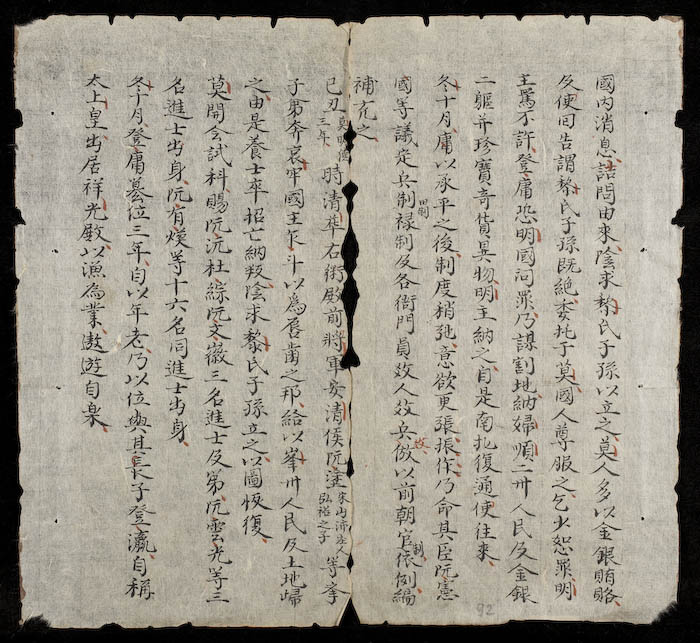 國内消息詰問由來陰求黎氏子孫以立之莫人多以金銀賄賂
及使回告謂黎氏子孫既絶委托于莫國人尊服之乞少恕罪明
主罵不許登庸恐明國问罪乃謀割地納婦順二卅人民及金銀
二軀并珍寶奇貨異物明主納之自是南北復通使往來
冬十月庸以承平之後制度稍弛意欲更張振作乃命其臣阮憲
國等議定兵制田制禄制及各衙門員数人数兵数倣以前朝官制依例編
補充之
己丑三年時清華右衛殿前將軍安清侯阮淦宋山人弘裕之子等率
子男奔哀牢國主乍斗以爲唇齒之邦給以峯卅人民及土地歸
之由是養士卒招亡納叛陰求黎氏子孫立之以圖恢復
莫開会試科賜阮沆杜綜阮文徽三名進士及第阮雲光等三
名進士出身阮有煥等十六名同進士出身
冬十月登庸簒位三年自以年老乃以位與其長子登瀛自稱
太上皇出居祥光殿以漁為業遨遊自樂
92